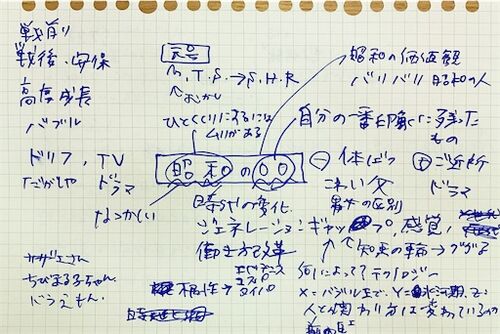 戦前
戦後、安保
高度成長
バブル
ドリフ, TV
ドラマ
なつかしい
サザエさん
ちびまる子ちゃん
ドラえもん.
元号
M, T, S → S, H, R
むかし
ひとくくりにするには
ムリがある
昭和の○○
昭和の価値観
バリバリ 昭和の人
自分の一番印象に残った
もの
体ばつ
こわい父
男女の区別
ご近所
ドラマ
時代の変化
ジェネレーションギャップ, 感覚,
働き方改革
根性→
タイパ
何によって?テクノロジー
X=バブル, Y=氷河期, Z=
人との関わり方は変わっているか